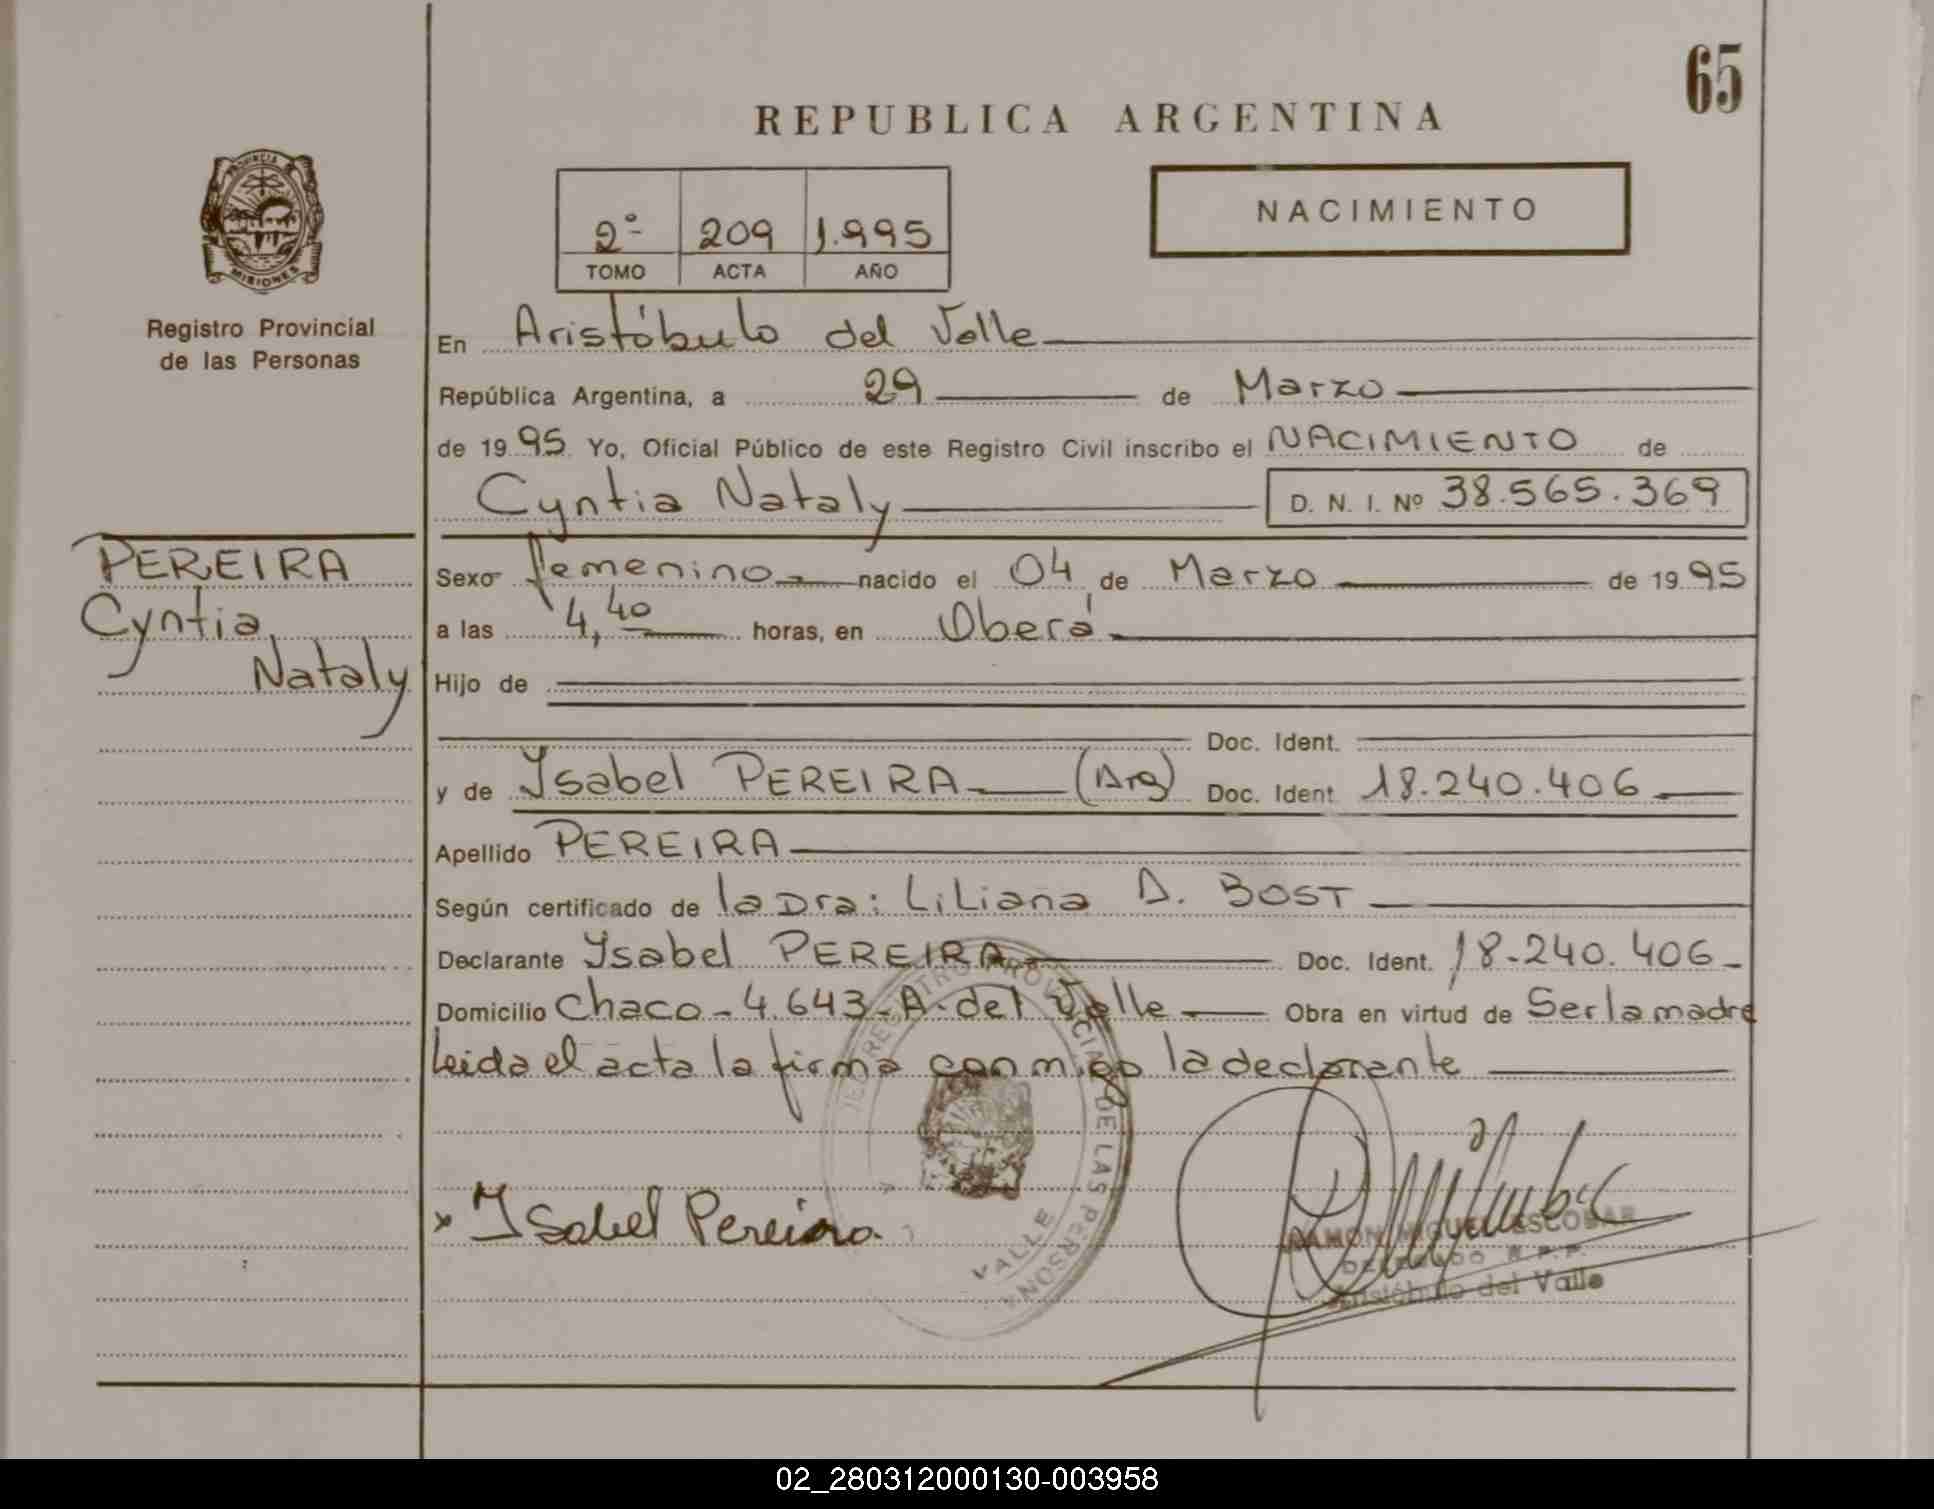 65
REPUBLICA ARGENTINA
PROVINCIA
MISIONES
Registro Provincial
de las Personas
2º 209 1.995
TOMO ACTA AÑO
NACIMIENTO
En Aristóbulo del Valle
República Argentina, a 29 de Marzo
de 1995 Yo, Oficial Público de este Registro Civil inscribo el NACIMIENTO de
Cyntia Nataly D. N. I. Nº 38.565.369
PEREIRA
Cyntia
Nataly
Sexo femenino nacido el 04 de Marzo de 1995
a las 4,40 horas, en Oberá
Hijo de
Doc. Ident.
y de Ysabel PEREIRA (Arg) Doc. Ident 18.240.406
Apellido PEREIRA
Según certificado de la Dra: Liliana D. BOST
Declarante Ysabel PEREIRA Doc. Ident. 18-240.406
Domicilio Chaco - 4.643 - A. del Valle Obra en virtud de Ser la madre
Leida el acta la firma conmigo la declarante
REGISTRO PROVINCIAL DE LAS PERSONAS
VALLE
x Isabel Pereira
RAMON MIGUEL ESCOBAR
DELEGADO R.P.P.
Aristóbulo del Valle
02_280312000130-003958